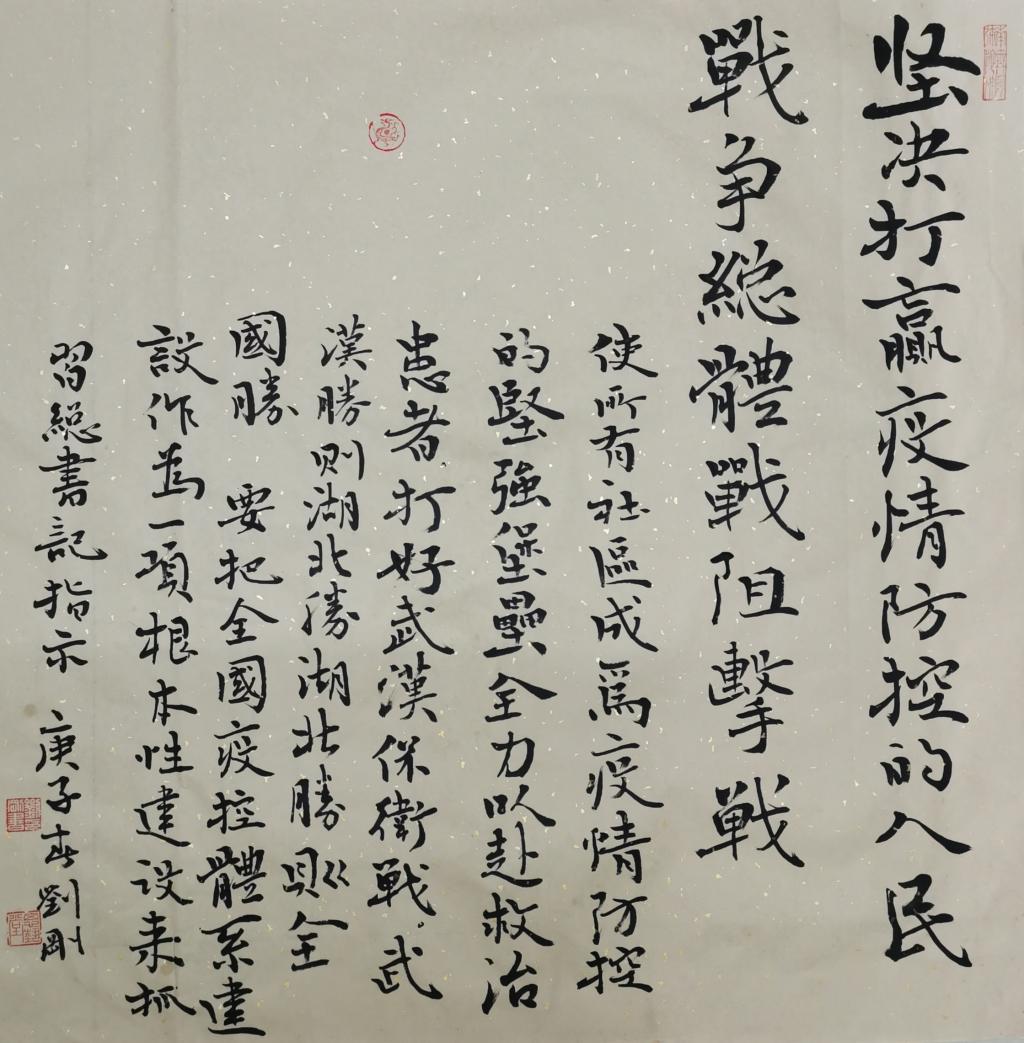 坚决打贏疫情防控的人民
戰争総體戰阻擊战
使所有社區成爲疫情防控
的堅強堡壘全力以赴救治
患者打好武漢保衛戰。武
漢勝则湖北勝湖北勝则全
國勝 要把全國疫控體系建
設作為一項根本性建设来抓
習総書記指示 庚子春劉剛